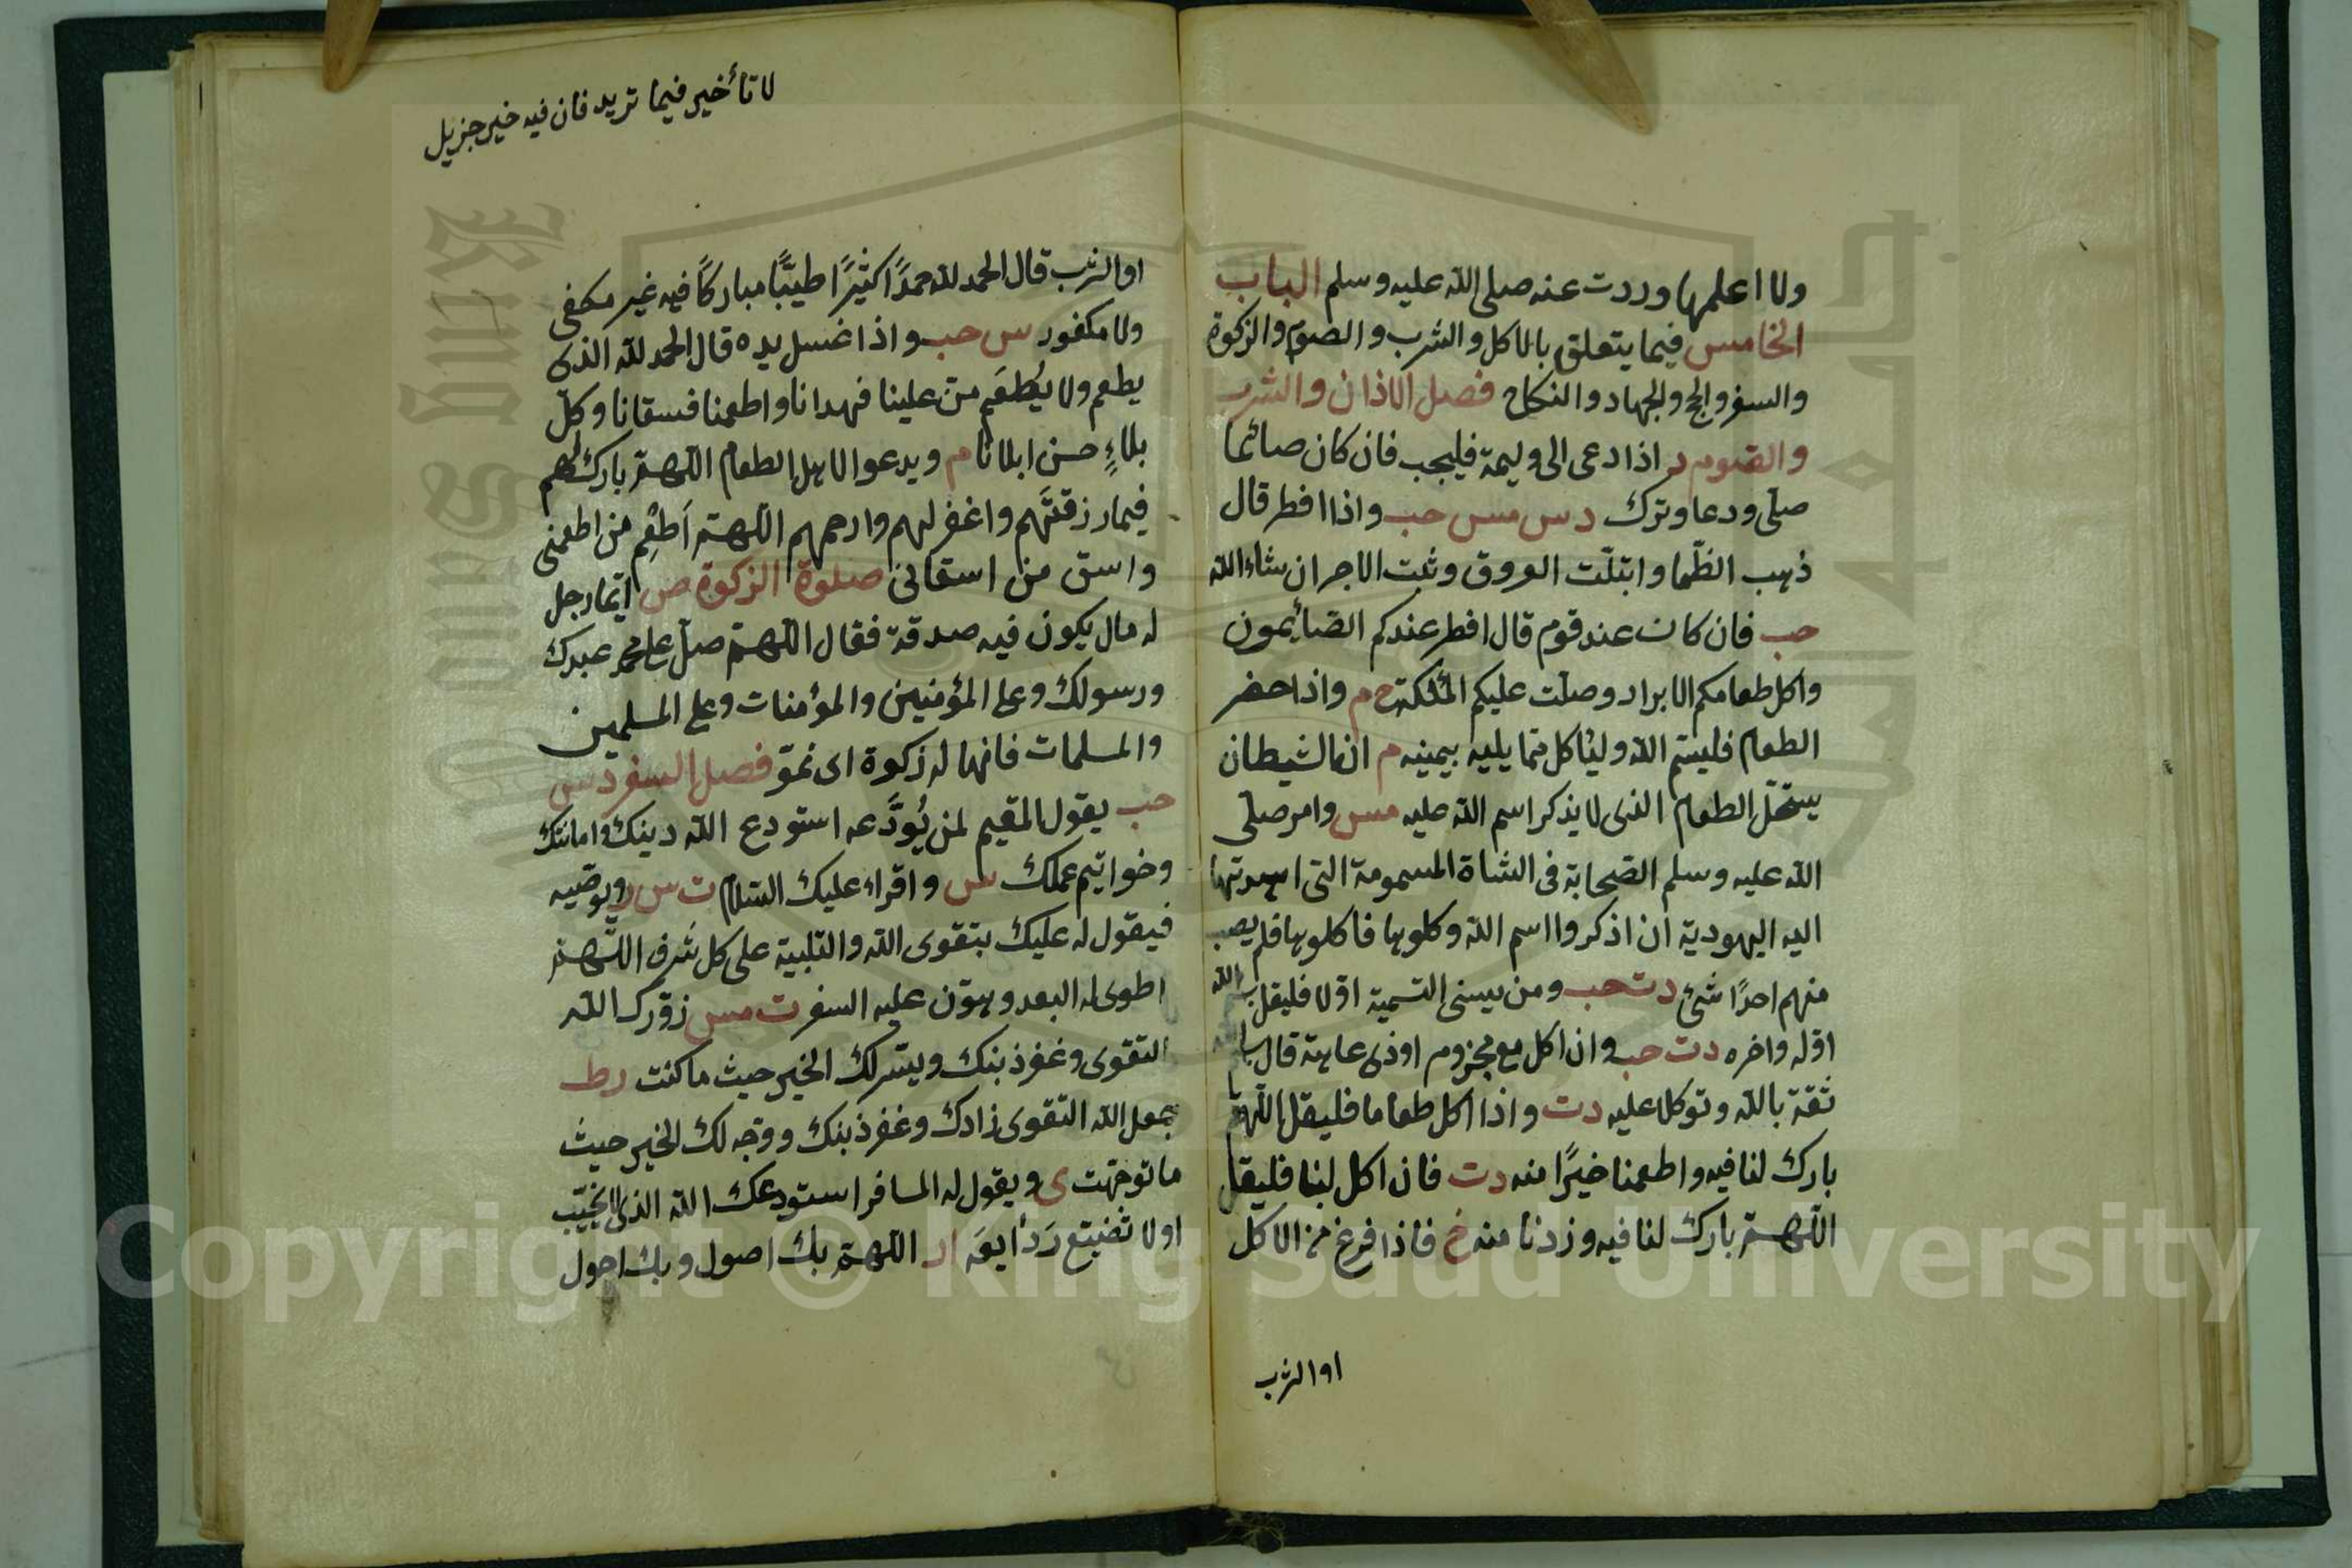 ولا اعلمها وردت عنه صلى الله عليه وسلم الباب
الخامس فيما يتعلق بالاكل والشرب والصوم والزكوة
والسفر والحج والجهاد والنكاح فصل الاذان والشرب
والصوم م اذا دعى الى وليمة فليجب فان كان صائما
صلّى ودعا وترك د س مس حب واذا افطر قال
ذهب الظّما وابتلّت العروق وثبت الاجر ان شاء الله
حب فان كان عند قوم قال افطر عندكم الصّائمون
واكل طعامكم الابرار وصلّت عليكم الملٔكة م واذا حضر
الطعام فليسمّ الله ولئاكل ممّا يليه بيمينه م ان الشيطان
يستحّل الطعام الذى لا يذكر اسم الله عليه مس وامر صلّى
الله عليه وسلم الصّحابة فى الشاة المسمومة التى اهدتها
اليه اليهودية ان اذكروا اسم الله وكلوها فاكلوها فلم يصب
منهم احدًا شئ د ت حب ومن ييسنى التسمية اوّلا فليقل بسم الله
اوّله واخره د ت حب وان اكل مع مجزوم او ذى عاهة قال بسم الله
ثقة بالله وتوكلا عليه د ت واذا اكل طعاما فليقل اللّهمّ
بارك لنا فيه واطعمنا خيرًا منه د ت فان اكل لبنا فليقل
اللّهمّ بارك لنا فيه وزدنا منه خ فاذا فرغ من الاكل
اوالشرب
لا تأخير فيما تريد فان فيه خير جزيل
اوالشرب قال الحمد لله حمدًا كثيرًا طيبًّا مباركًا فيه غير مكفى
ولا مكفور س حب واذا غسل يده قال الحمد لله الذى
يطعم ولا يُطعَم منّ علينا فهدانا واطعمنا فسقانا وكلّ
بلاءٍ حسن ابلانا م ويدعوا لاهل الطعام اللّهمّ بارك لهم
فيما رزقتَهم واغفر لهم وارحمهم اللّهمّ اَطعِم من اطعمنى
واسق من اسقانى صلوة الزكوة ص ايّما رجل
له مال يكون فيه صدقة فقال اللّهمّ صلّ على محمد عبدك
ورسولك وعلى المؤمنين والمؤمنات وعلى المسلمين
والمسلمات فانها له زكوة اى نموّ فصل السفر د س
حب يقول المقيم لمن يُودَّعه استودع الله دينك وامانتك
وخواتيم عملك س واقراء عليك السّلام ت س ويوصّيه
فيقول له عليك بتقوى الله والتلبية على كل شَرف اللّهمّ
اطوى له البعد وهوّن عليه السفر ت مس زوّدك الله
التقوى وغفر ذبنك ويسّر لك الخير حيث ما كنت ر ط
جعل الله التقوى زادك وغفر ذبنك ووجّه لك الخير حيث
ما توجّهت ى ويقول له المسافر استودعك الله الذى لا يخيّب
اولا تضيتع رَدأيعَه ا ر اللّهمّ بك اصول وبك احول
Copyright © King Saud University